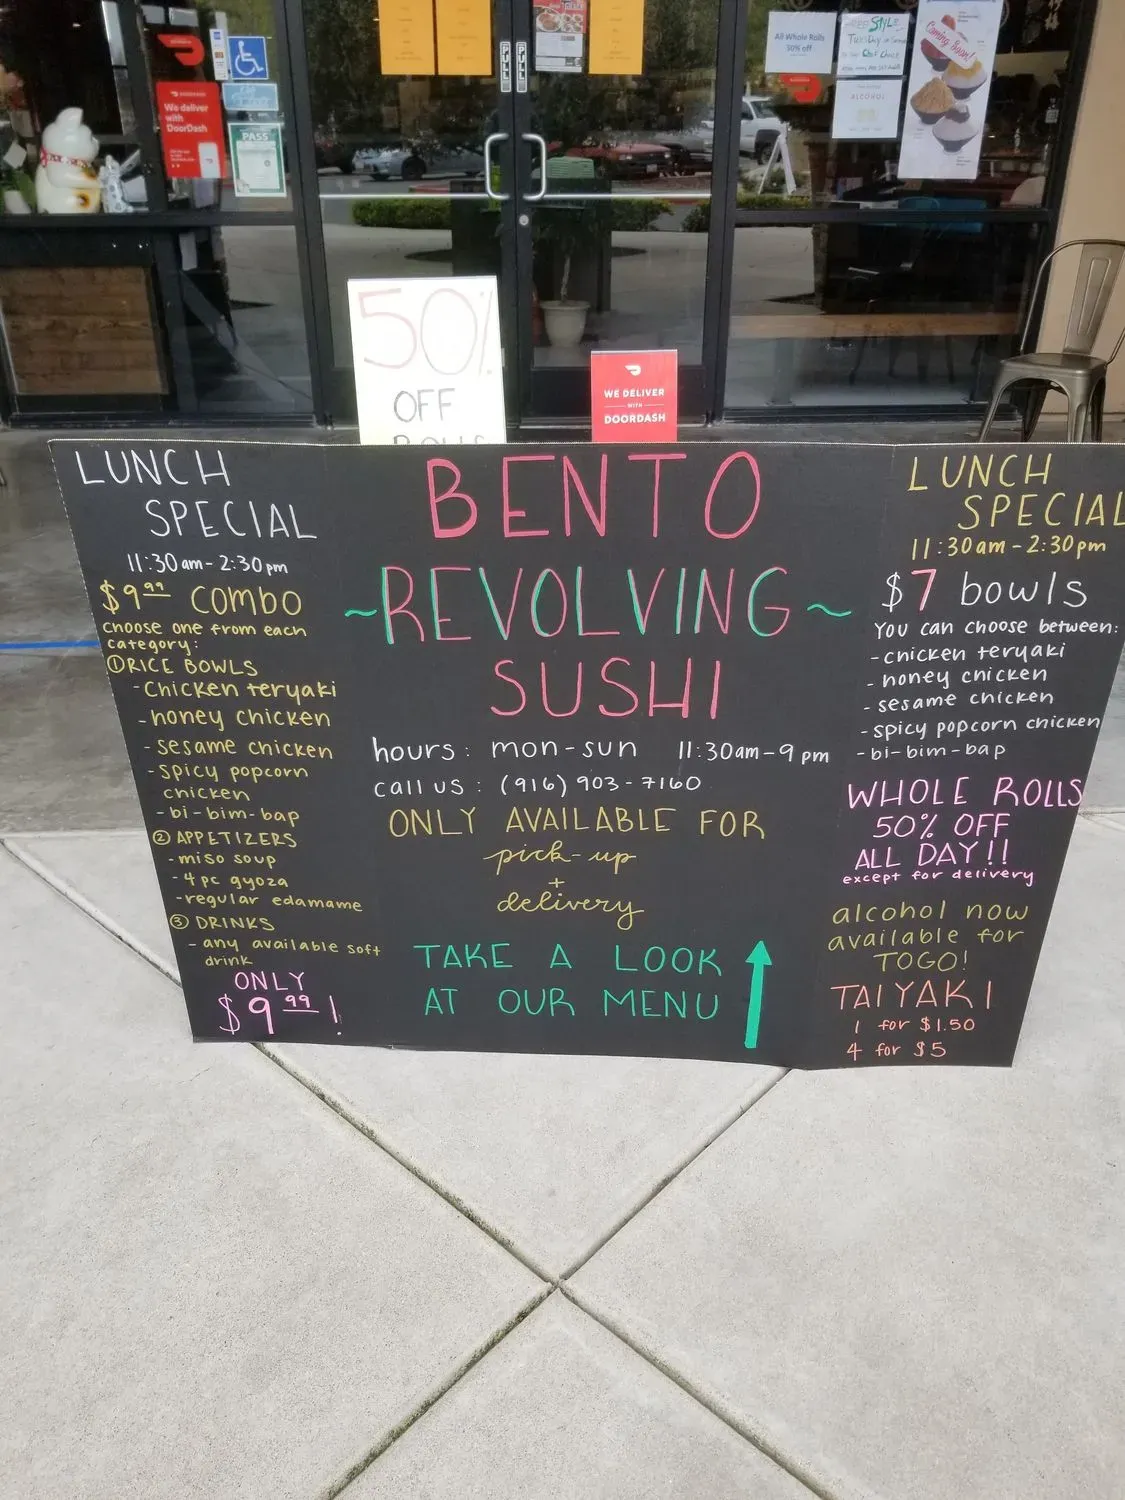 We deliver
with
DoorDash
PASS
PULL
PULL
All Whole Rolls
50% off
Coming Soon!
ALCOHOL
50%
OFF
ROLLS
WE DELIVER
WITH
DOORDASH
LUNCH
SPECIAL
11:30am-2:30pm
$9.99 COMBO
choose one from each
category:
①RICE BOWLS
-Chicken teryaki
-honey chicken
-sesame chicken
-spicy popcorn
chicken
-bi-bim-bap
② APPETIZERS
-miso soup
-4 pc gyoza
-regular edamame
③ DRINKS
- any available soft
drink
ONLY
$9.99!
BENTO
~REVOLVING~
SUSHI
hours: mon-sun 11:30am-9pm
call us: (916) 903-7160
ONLY AVAILABLE FOR
pick-up
+
delivery
TAKE A LOOK
AT OUR MENU
LUNCH
SPECIAL
11:30am-2:30pm
$7 bowls
You can choose between:
-chicken teryaki
- honey chicken
- sesame chicken
-spicy popcorn chicken
-bi-bim-bap
WHOLE ROLLS
50% OFF
ALL DAY!!
except for delivery
alcohol now
available for
TOGO!
TAIYAKI
1 for $1.50
4 for $5